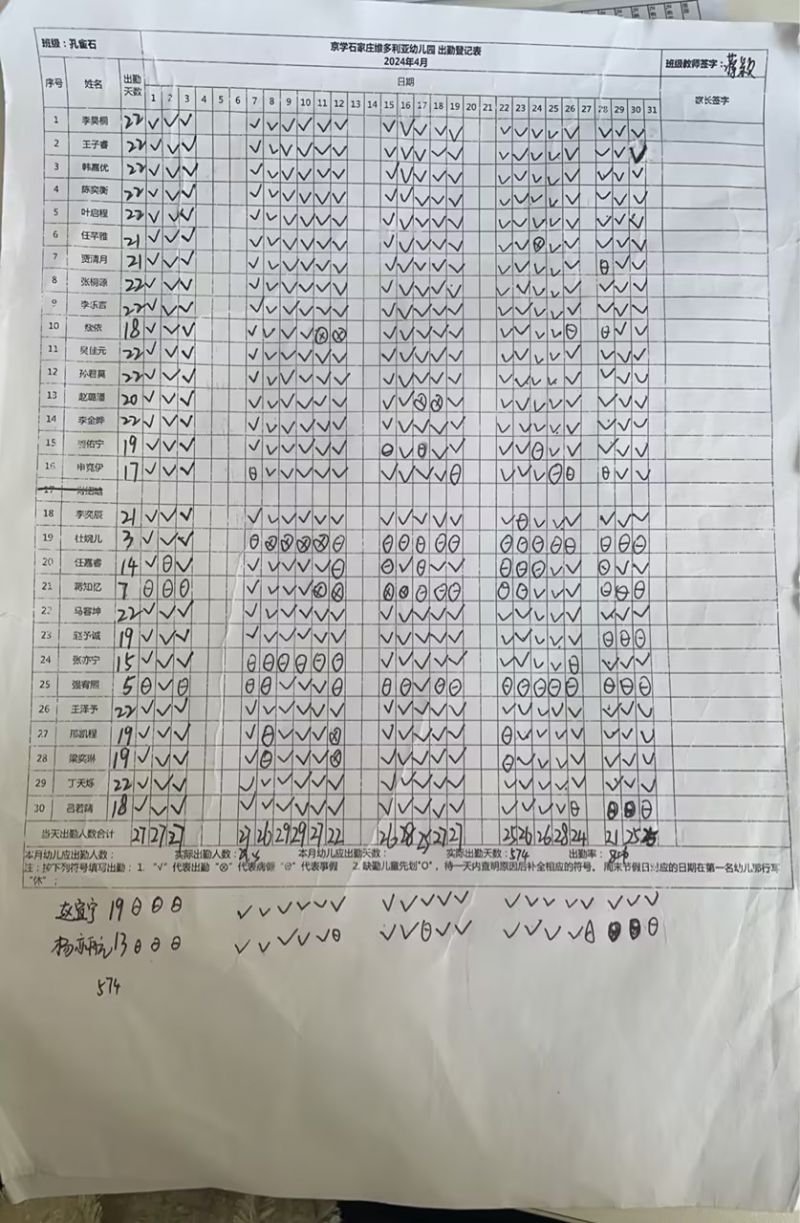 班级：孔雀石
京学石家庄维多利亚幼儿园 出勤登记表
2024年4月
班级教师签字：蒋颖
序号 姓名 出勤天数 日期 家长签字
1 2 3 4 5 6 7 8 9 10 11 12 13 14 15 16 17 18 19 20 21 22 23 24 25 26 27 28 29 30 31
1 李昊桐 22 √ √ √ √ √ √ √ √ √ √ √ √ √ √ √ √ √ √ √ √ √ √
2 王子睿 22 √ √ √ √ √ √ √ √ √ √ √ √ √ √ √ √ √ √ √ √ √ √
3 韩嘉优 22 √ √ √ √ √ √ √ √ √ √ √ √ √ √ √ √ √ √ √ √ √ √
4 陈奕衡 22 √ √ √ √ √ √ √ √ √ √ √ √ √ √ √ √ √ √ √ √ √ √
5 叶启程 22 √ √ √ √ √ √ √ √ √ √ √ √ √ √ √ √ √ √ √ √ √ √
6 任芊雅 21 √ √ √ √ √ √ √ √ √ √ √ √ √ √ √ √ ⊗ √ √ √ √ √
7 贾清月 21 √ √ √ √ √ √ √ √ √ √ √ √ √ √ √ √ √ √ √ ⊖ √ √
8 张桐源 22 √ √ √ √ √ √ √ √ √ √ √ √ √ √ √ √ √ √ √ √ √ √
9 李乐言 22 √ √ √ √ √ √ √ √ √ √ √ √ √ √ √ √ √ √ √ √ √ √
10 18 √ √ √ √ √ √ √ ⊗ ⊗ √ √ √ √ √ √ √ √ √ ⊖ ⊖ √ √
11 吴佳元 22 √ √ √ √ √ √ √ √ √ √ √ √ √ √ √ √ √ √ √ √ √ √
12 孙君昊 22 √ √ √ √ √ √ √ √ √ √ √ √ √ √ √ √ √ √ √ √ √ √
13 赵璐潘 20 √ √ √ √ √ √ √ √ √ √ √ ⊗ ⊗ √ √ √ √ √ √ √ √ √
14 李金晔 22 √ √ √ √ √ √ √ √ √ √ √ √ √ √ √ √ √ √ √ √ √ √
15 佑宁 19 √ √ √ √ √ √ √ √ √ ⊖ √ ⊖ √ √ √ √ ⊖ √ √ √ √ √
16 申竞伊 17 √ √ √ ⊖ √ √ √ √ √ √ √ √ √ ⊖ √ √ √ ⊖ ⊖ ⊖ √ √
17
18 李奕辰 21 √ √ √ √ √ √ √ √ √ √ √ √ √ √ √ ⊖ √ √ √ √ √ √
19 杜婉儿 3 √ √ √ ⊖ ⊗ ⊗ ⊗ ⊗ ⊖ ⊖ ⊖ ⊖ ⊖ ⊖ ⊖ ⊖ ⊖ ⊖ ⊖ ⊖ ⊖ ⊖
20 任嘉睿 14 √ ⊖ √ √ √ √ √ √ ⊖ ⊖ √ ⊖ √ √ ⊖ ⊖ ⊖ √ √ ⊖ √ √
21 蒋知忆 7 ⊖ ⊖ ⊖ √ √ √ √ ⊗ ⊗ ⊗ ⊗ ⊖ ⊖ ⊖ ⊖ ⊖ √ √ √ ⊖ ⊖ ⊖
22 马睿坤 22 √ √ √ √ √ √ √ √ √ √ √ √ √ √ √ √ √ √ √ √ √ √
23 赵予诚 19 √ √ √ √ √ √ √ √ √ √ √ √ √ √ √ √ √ √ √ ⊖ ⊖ ⊖
24 张亦宁 15 √ √ √ ⊖ ⊖ ⊖ ⊖ ⊖ ⊖ √ √ √ √ √ √ √ √ √ ⊖ √ √ √
25 强宥熙 5 ⊖ √ ⊖ ⊖ ⊖ √ √ √ ⊖ ⊖ ⊖ √ ⊖ ⊖ ⊖ ⊖ ⊖ ⊖ ⊖ ⊖ ⊖ ⊖
26 王泽予 22 √ √ √ √ √ √ √ √ √ √ √ √ √ √ √ √ √ √ √ √ √ √
27 邢凯程 19 √ √ √ √ ⊖ √ √ √ ⊗ √ √ √ √ √ ⊖ √ √ √ √ √ √ √
28 梁奕琳 19 √ √ √ √ ⊖ √ √ √ ⊗ √ √ √ √ √ ⊖ √ √ √ √ √ √ √
29 丁天烁 22 √ √ √ √ √ √ √ √ √ √ √ √ √ √ √ √ √ √ √ √ √ √
30 吕若晴 18 √ √ √ √ √ √ √ √ √ √ √ √ √ √ √ √ √ √ ⊖ ⊖
当天出勤人数合计 27 27 27 27 26 29 29 27 22 26 28 25 27 27 25 26 26 28 24 21 25
本月幼儿应出勤人数： 实际出勤人数： 本月幼儿应出勤天数： 实际出勤天数：574 出勤率：
注：按下列符号填写出勤：1."√"代表出勤 "⊗"代表病假 "⊖"代表事假 2.缺勤儿童先划"O"，待一天内查明原因后补全相应的符号。周末节假日对应的日期在第一名幼儿那行写
"休"；
赵宣宇 19 ⊖ ⊖ ⊖ √ √ √ √ √ √ √ √ √ √ √ √ √ √ √ √ √ √ √
杨亦航 13 ⊖ ⊖ ⊖ √ √ √ √ √ ⊖ √ √ ⊖ √ √ √ √ √ √ ⊖ ⊖
574